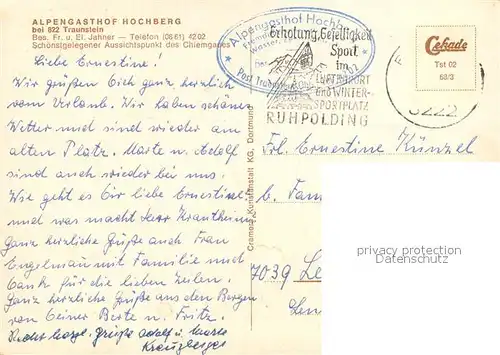 ALPENGASTHOF HOCHBERG
bei 822 Traunstein
Bes. Fr. u. El. Jahner — Telefon (08 61) 42 02
Schönstgelegener Aussichtspunkt des Chiemgaues
Liebe Ernestine!
Wir grüßen Dich ganz herzlich
vom Urlaub. Wir haben schönes
Wetter und sind wieder am
alten Platz. Marte u. Adolf
sind auch wieder bei uns.
Wie geht es Dir liebe Ernestine
und was macht Herr Krautheim
Ganz herzliche Grüße auch Frau
Engelman mit Familie und
Dank für die lieben Zeilen.
Ganz herzliche Grüße aus den Bergen
von Deiner Berte u. Fritz.
Recht herzl. Grüße Adolf u. Marte
Kreuzberger
Cramers Kunstanstalt KG, Dortmund
Alpengasthof Hochberg
Post Traunstein
Erholung, Geselligkeit
Sport
im
LUFTKURORT
UND WINTER-
SPORTPLATZ
RUHPOLDING
8222
Cekade
Tst 02
68/3
Frl. Ernestine Künzel
b. Fam.
7039
privacy protection
Datenschutz